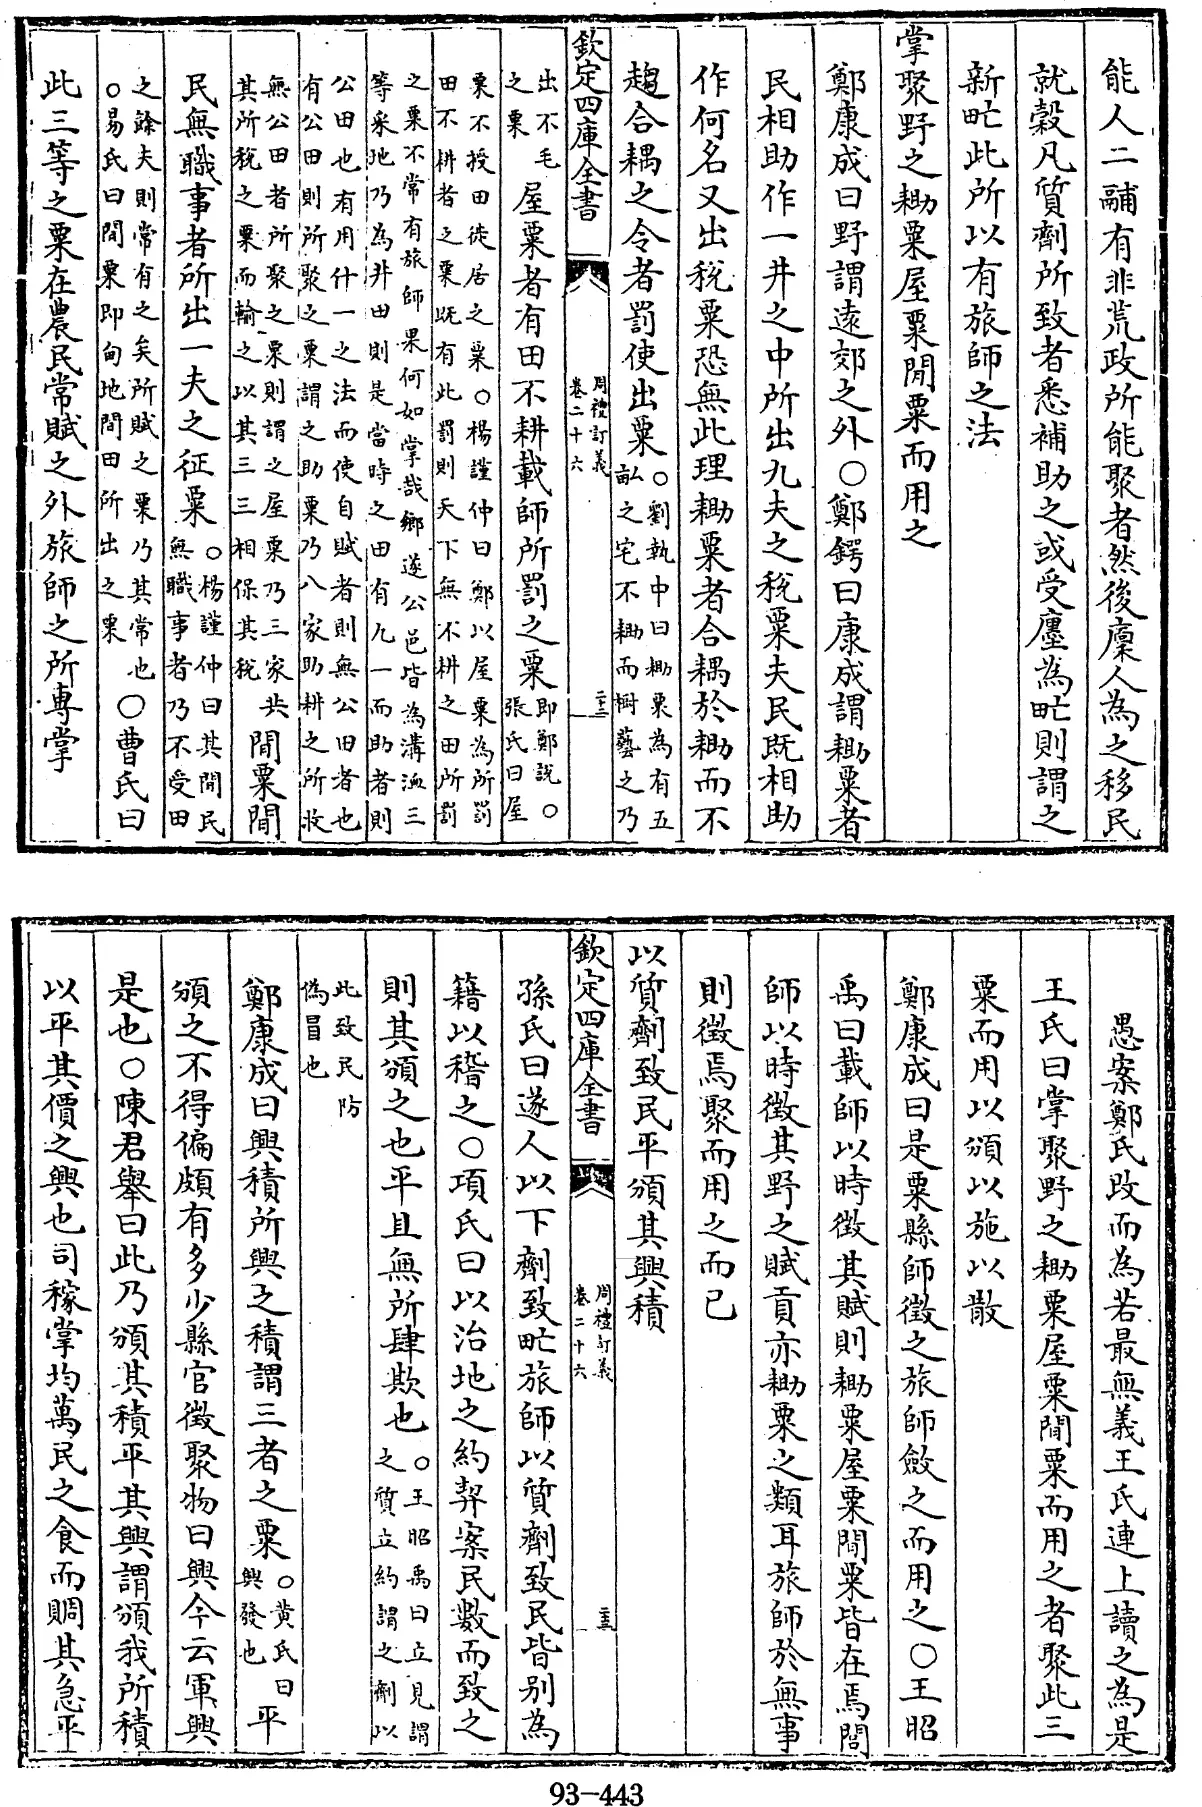 能人二鬴有非荒政所能聚者然後廩人為之移民
就穀凡質劑所致者悉補助之或受廛為甿則謂之
新甿此所以有旅師之法
掌聚野之耡粟屋粟閒粟而用之
鄭康成曰野謂遠郊之外○鄭鍔曰康成謂耡粟者
民相助作一井之中所出九夫之稅粟夫民既相助
作何名又出稅粟恐無此理耡粟者合耦於耡而不
趨合耦之令者罰使出粟
○劉執中曰耡粟為有五
畝之宅不耡而樹藝之乃
欽定四庫全書
周禮訂義
卷二十六
二十二
出不毛
之粟
屋粟者有田不耕載師所罰之粟
即鄭說○
張氏曰屋
粟不授田徒居之粟○楊謹仲曰鄭以屋粟為所罰
田不耕者之粟既有此罰則天下無不耕之田所罰
之粟不常有旅師果何如掌哉鄉遂公邑皆為溝洫三
等采地乃為井田則是當時之田有九一而助者則
公田也有用什一之法而使自賦者則無公田者也
有公田則所聚之粟謂之助粟乃八家助耕之所收
無公田者所聚之粟則謂之屋粟乃三家共
其所稅之粟而輸之以其三三相保其稅
閒粟閒
民無職事者所出一夫之征粟
○楊謹仲曰其閒民
無職事者乃不受田
之餘夫則常有之矣所賦之粟乃其常也
○易氏曰閒粟即甸地閒田所出之粟
○曹氏曰
此三等之粟在農民常賦之外旅師之所專掌
愚案鄭氏改而為若最無義王氏連上讀之為是
王氏曰掌聚野之耡粟屋粟閒粟而用之者聚此三
粟而用以頒以施以散
鄭康成曰是粟縣師徵之旅師斂之而用之○王昭
禹曰載師以時徵其賦則耡粟屋粟閒粟皆在焉閭
師以時徵其野之賦貢亦耡粟之類耳旅師於無事
則徵焉聚而用之而已
以質劑致民平頒其興積
欽定四庫全書
周禮訂義
卷二十六
二十三
孫氏曰遂人以下劑致甿旅師以質劑致民皆別為
籍以稽之○項氏曰以治地之約契案民數而致之
則其頒之也平且無所肆欺也
○王昭禹曰立見謂
之質立約謂之劑以
此致民防
偽冒也
鄭康成曰興積所興之積謂三者之粟
○黃氏曰
興發也
平
頒之不得偏頗有多少縣官徵聚物曰興今云軍興
是也○陳君舉曰此乃頒其積平其興謂頒我所積
以平其價之興也司稼掌均萬民之食而賙其急平
93-443